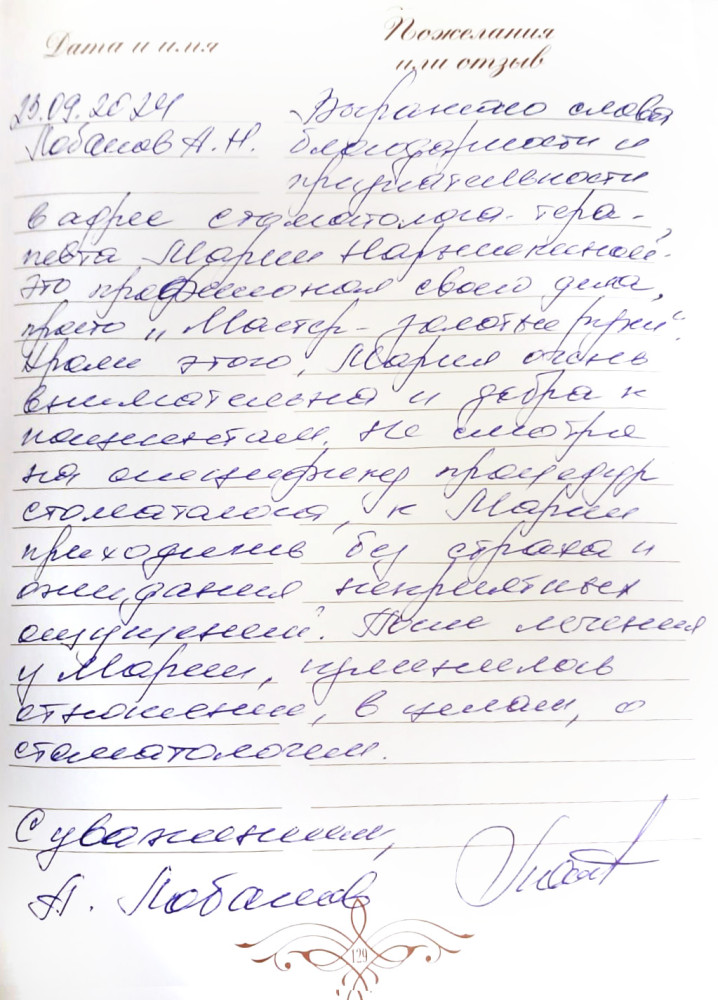 Дата и имя
Пожелания
или отзыв
23.09.2024
Лобанов А.Н.
Выражаю слова
благодарности и
признательности
в адрес стоматолога-тера-
певта Марии Нарышкиной.
Это профессионал своего дела,
просто „Мастер - золотые руки".
Кроме этого, Мария очень
внимательна и добра к
пациентам. Не смотря
на специфику процедур
стоматолога, к Марии
приходишь без страха и
ожидания неприятных
ощущений. После лечения
у Марии, изменилось
отношение, в целом, о
стоматологии.
С уважением,
А. Лобанов
129